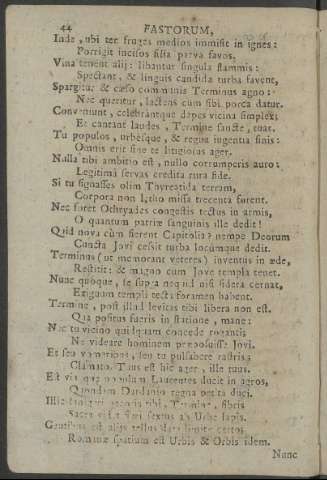 44 FASTORUM,
Inde, ubi ter fruges medios immisit in ignes:
Porrigit incisos filia parva favos.
Vina tenent alij: libantur singula flammis:
Spectant, & linguis candida turba favent,
Spargitur & cæso communis Terminus agno:
Nec queritur, lactens cum sibi porca datur.
Conveniunt, celebrantque dapes vicina simplex:
Et cantant laudes, Termine sancte, tuas.
Tu populos, urbesque, & regna ingentia finis:
Omnis erit sine te litigiosus ager.
Nulla tibi ambitio est, nullo corrumperis auro:
Legitima servas credita rura fide.
Si tu signasses olim Thyreatida terram,
Corpora non letho missa trecenta forent.
Nec foret Othryades congestis tectus in armis,
O quantum patriæ sanguinis ille dedit!
Quid nova cùm fierent Capitolia? nempe Deorum
Cuncta Jovi cessit turba locumque dedit.
Terminus (ut memorant veteres) inventus in æde,
Restitit: & magno cum Jove templa tenet.
Nunc quoque, se supra nequid nisi sidera cernat,
Exiguum templi tecta foramen habent.
Termine, post illud levitas tibi libera non est.
Qua positus fueris in statione, mane:
Nec tu vicino quidquam concede roganti
Ne videare hominem præposuisse Jovi.
Et seu vomeribus, seu tu pulsabere rastris,
Clamato, Tuus est hic ager, ille tuus.
Et via quæ populum Laurentes ducit in agros,
Quondam Dardanio regna petita duci.
Illa lanigeri pecoris tibi, Termine, fibris
Sacra videt fieri sextus ab Urbe lapis.
Gentibus est alijs tellus data limite certo:
Romanæ spatium est Urbis & Orbis idem.
Nunc